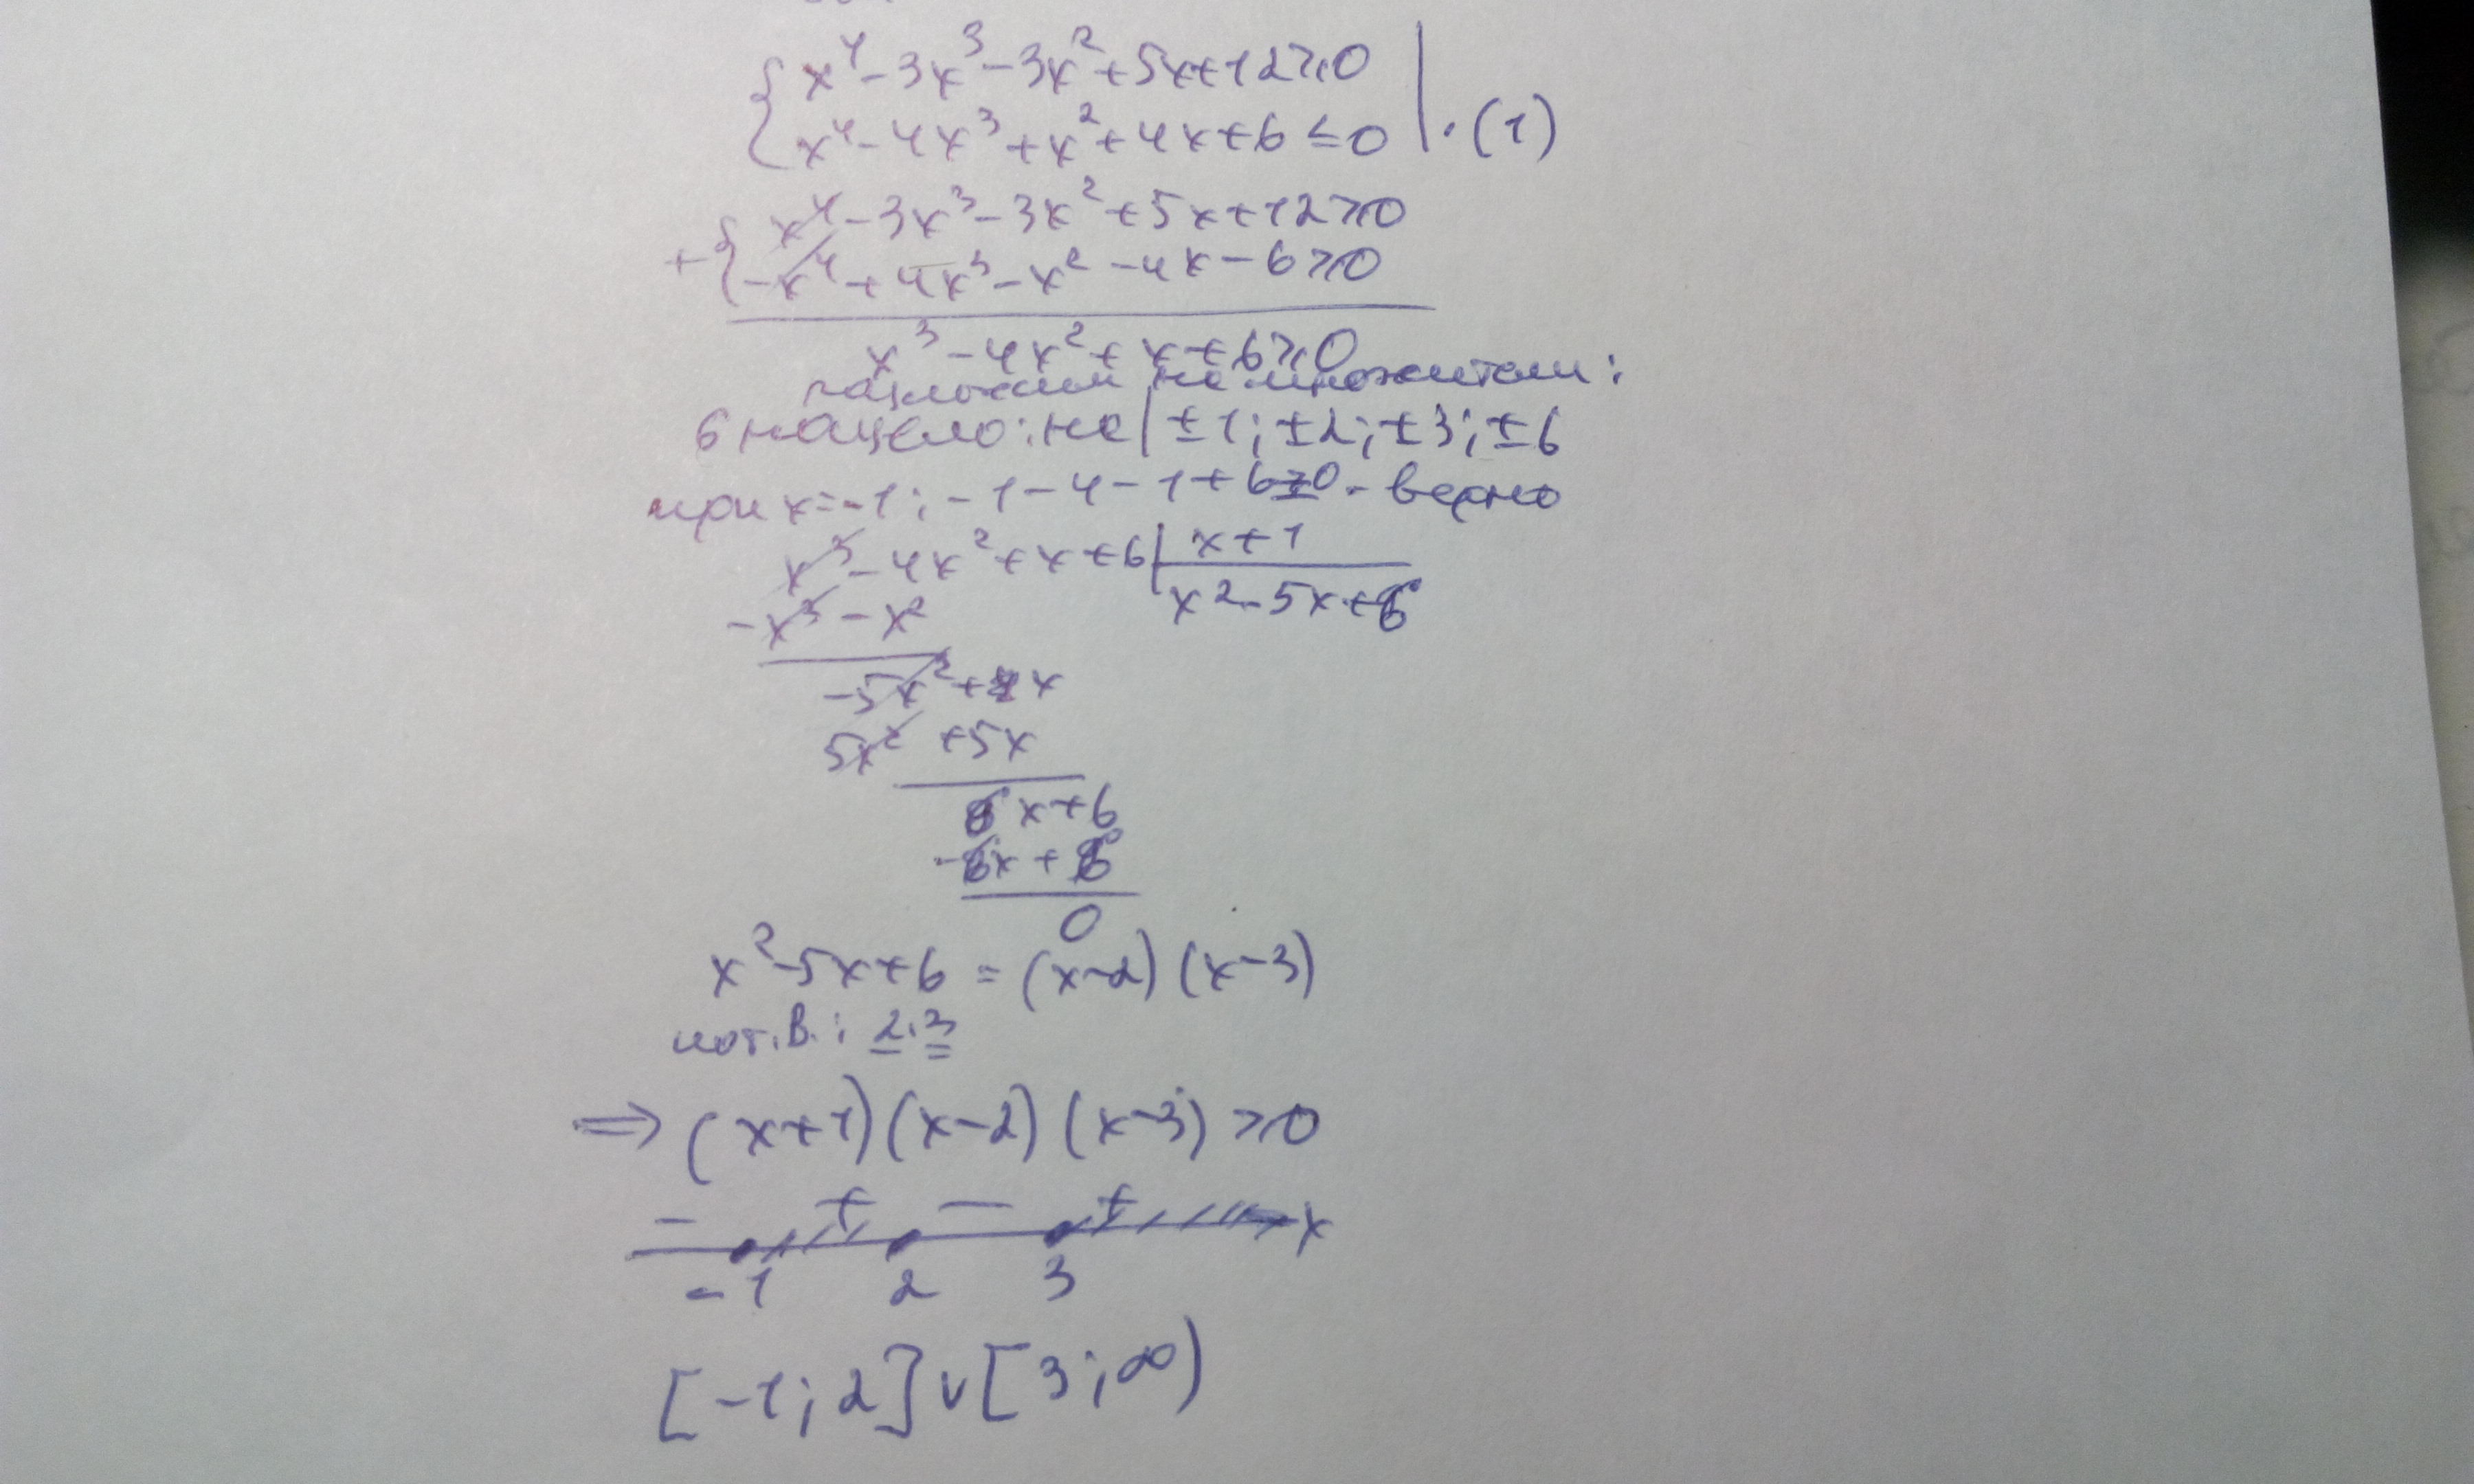 { x⁴ - 3x³ - 3x² + 5x + 12 ≥ 0
x⁴ - 4x³ + x² + 4x + 6 ≤ 0 | · (1)
+ { x⁴ - 3x³ - 3x² + 5x + 12 ≥ 0
-x⁴ + 4x³ - x² - 4x - 6 ≥ 0
x³ - 4x² + x + 6 ≥ 0
разложим на множители:
6 нацело: на | ±1; ±2; ±3; ±6
при x = -1; -1 - 4 - 1 + 6 = 0 - верно
x³ - 4x² + x + 6 | x + 1
-x³ - x² x² - 5x + 6
-5x² + x
5x² + 5x
6x + 6
-6x + 6
0
x² - 5x + 6 = (x-2) (x-3)
пот. В.: 2; 3
⇒ (x+1) (x-2) (x-3) ≥ 0
- + - +
x
-1 2 3
[-1; 2] ∪ [3; ∞)